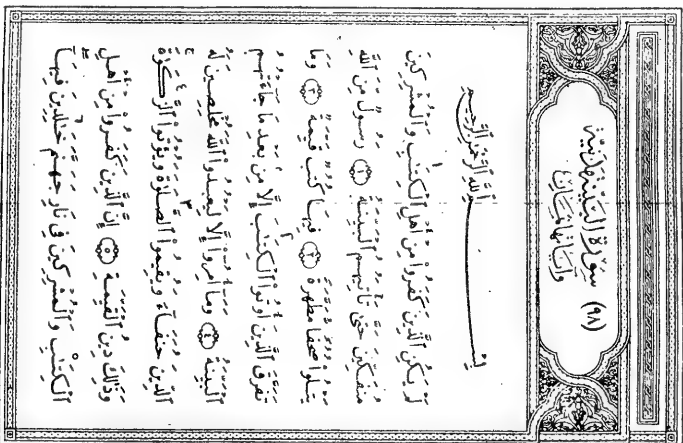 (٩٨) سُورَةُ الْبَيِّنَةِ مَدَنِيَّة
وَآيَاتُهَا ثَمَانٍ
بِسْمِ ٱللَّهِ ٱلرَّحْمَٰنِ ٱلرَّحِيمِ
لَمْ يَكُنِ ٱلَّذِينَ كَفَرُوا۟ مِنْ أَهْلِ ٱلْكِتَٰبِ وَٱلْمُشْرِكِينَ
مُنفَكِّينَ حَتَّىٰ تَأْتِيَهُمُ ٱلْبَيِّنَةُ ١ رَسُولٌ مِّنَ ٱللَّهِ
يَتْلُوا۟ صُحُفًا مُّطَهَّرَةً ٢ فِيهَا كُتُبٌ قَيِّمَةٌ ٣ وَمَا
تَفَرَّقَ ٱلَّذِينَ أُوتُوا۟ ٱلْكِتَٰبَ إِلَّا مِنۢ بَعْدِ مَا جَآءَتْهُمُ
ٱلْبَيِّنَةُ ٤ وَمَآ أُمِرُوٓا۟ إِلَّا لِيَعْبُدُوا۟ ٱللَّهَ مُخْلِصِينَ لَهُ
ٱلدِّينَ حُنَفَآءَ وَيُقِيمُوا۟ ٱلصَّلَوٰةَ وَيُؤْتُوا۟ ٱلزَّكَوٰةَ
وَذَٰلِكَ دِينُ ٱلْقَيِّمَةِ ٥ إِنَّ ٱلَّذِينَ كَفَرُوا۟ مِنْ أَهْلِ
ٱلْكِتَٰبِ وَٱلْمُشْرِكِينَ فِى نَارِ جَهَنَّمَ خَٰلِدِينَ فِيهَآ